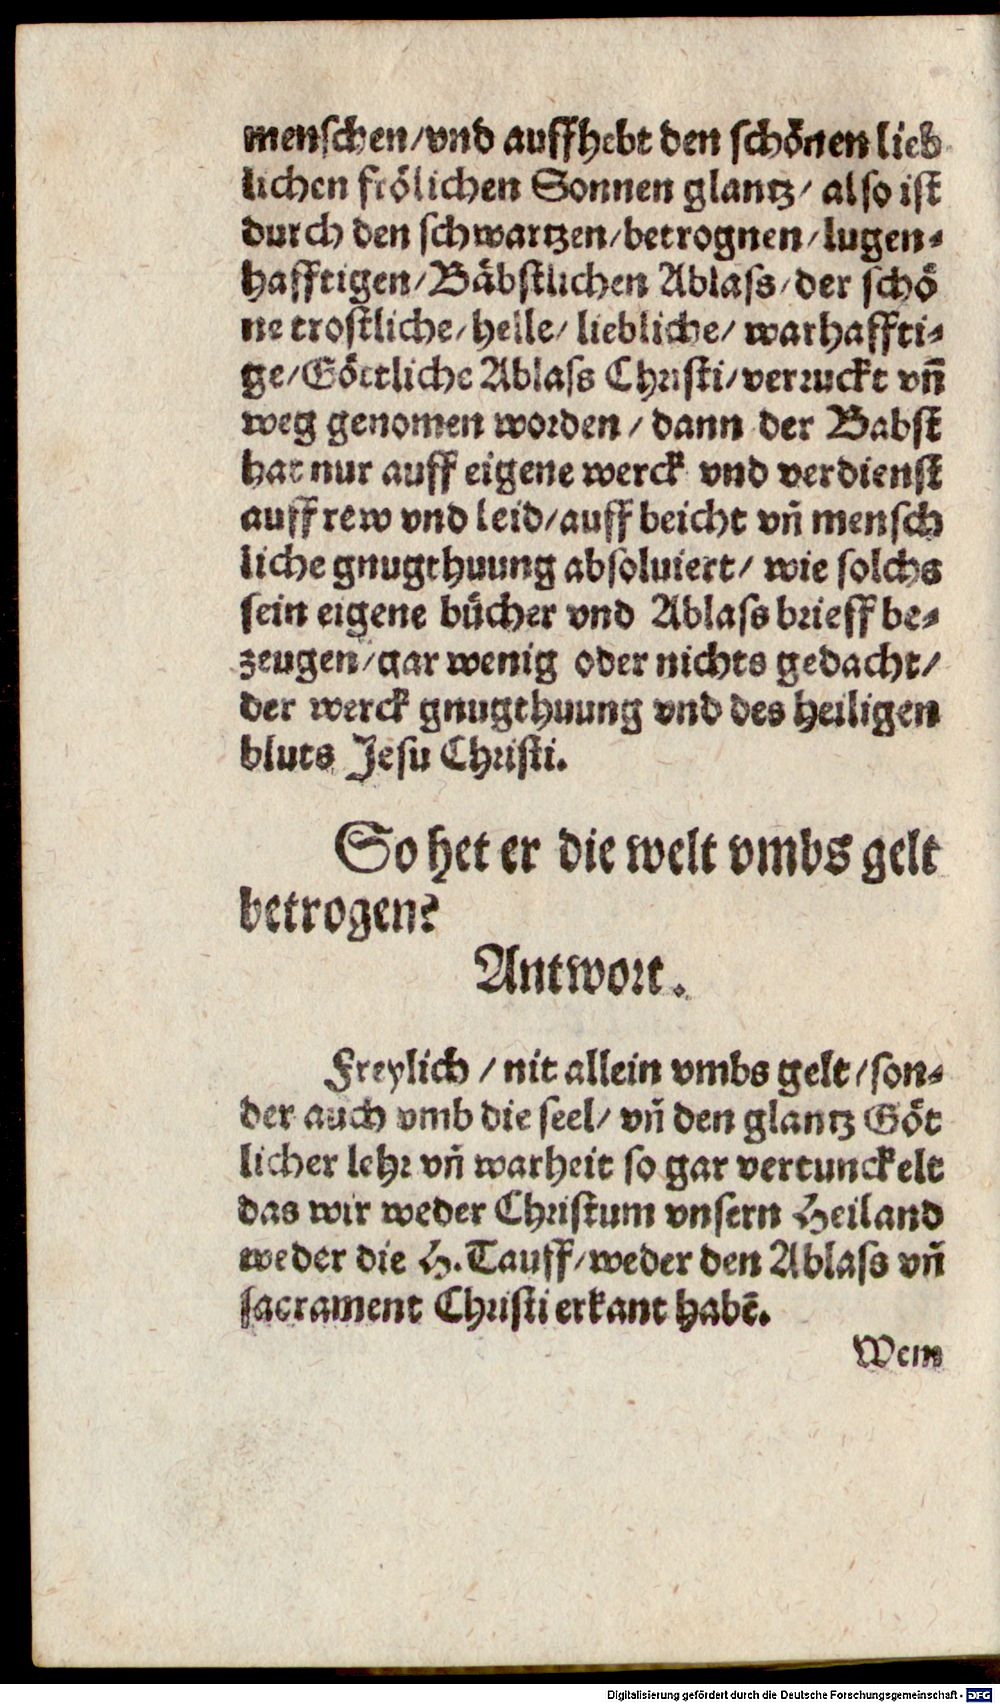 menschen/vnd auffhebt den schönen lieb
lichen frölichen Sonnen glantz/ also ist
durch den schwartzen/betrognen/lugen⸗
hafftigen/Bäbstlichen Ablass/der schö
ne trostliche/helle/ liebliche/ warhaffti⸗
ge/Göttliche Ablass Christi/verruckt vñ
weg genomen worden/ dann der Babst
hat nur auff eigene werck vnd verdienst
auff rew vnd leid/auff beicht vñ mensch
liche gnugthuung absoluiert/ wie solchs
sein eigene bücher vnd Ablass brieff be⸗
zeugen/gar wenig oder nichts gedacht/
der werck gnugthuung vnd des heiligen
bluts Jesu Christi.
So het er die welt vmbs gelt
betrogen?
Antwort.
Freylich/ nit allein vmbs gelt/son⸗
der auch vmb die seel/ vñ den glantz Göt
licher lehr vñ warheit so gar vertunckelt
das wir weder Christum vnsern Heiland
weder die H.Tauff/weder den Ablass vñ
sacrament Christi erkant habē.
Wem
Digitalisierung gefördert durch die Deutsche Forschungsgemeinschaft - DFG